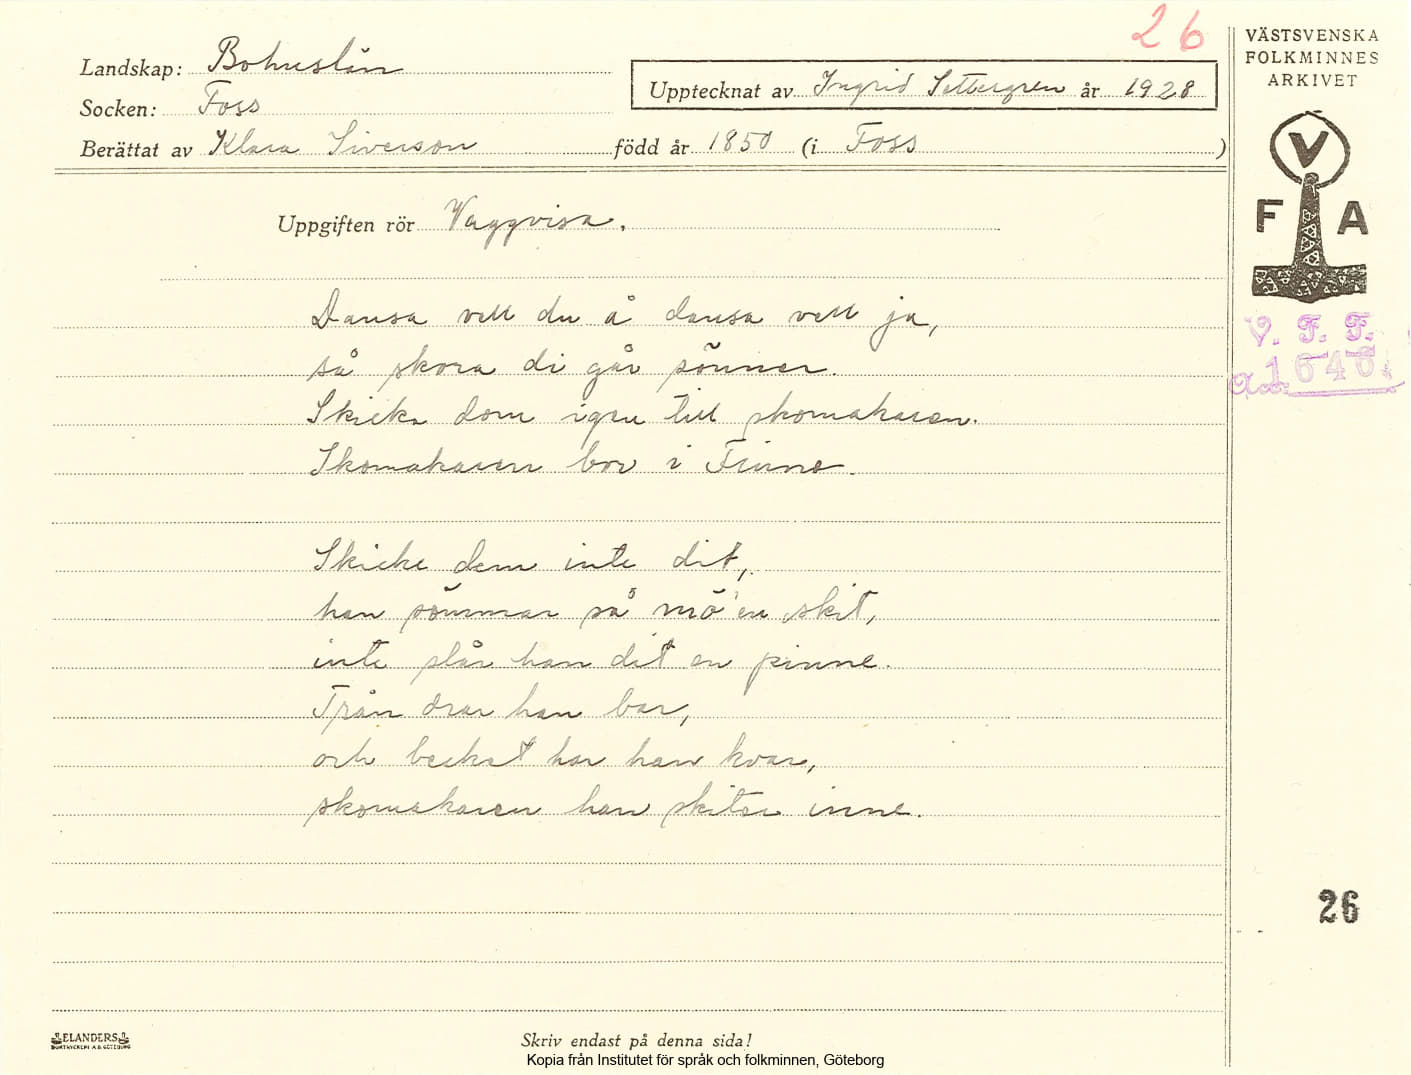 26
VÄSTSVENSKA
FOLKMINNES
ARKIVET
Landskap: Bohuslän
Socken: Foss
Upptecknat av Ingrid Settergren år 1928
Berättat av Klara Siverson född år 1850 (i Foss)
V
F A
Uppgiften rör Vaggvisa.
Dansa vell du å dansa vell ja,
så skora di går sönner.
Skicka dom igen till skomakaren.
Skomakaren bor i Finne.
V. F. F.
Acc. 1646
Skicke dem inte dit,
han sömmar så mö'en skit,
inte slår han dit en pinne.
Trån drar han bar,
och becket har han kvar,
skomakaren han skiter inne.
26
ELANDERS
BOKTRYCKERI A.B. GÖTEBORG
Skriv endast på denna sida!
Kopia från Institutet för språk och folkminnen, Göteborg